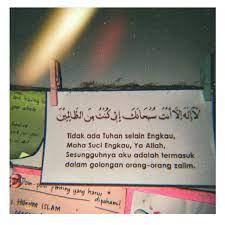 لَا إِلَهَ إِلَّا أَنْتَ سُبْحَانَكَ إِنِّي كُنْتُ مِنَ الظَّالِمِينَ
Tidak ada Tuhan selain Engkau,
Maha Suci Engkau, Ya Allah,
Sesungguhnya aku adalah termasuk
dalam golongan orang-orang zalim.
yang harus
dipahami
ISLAM